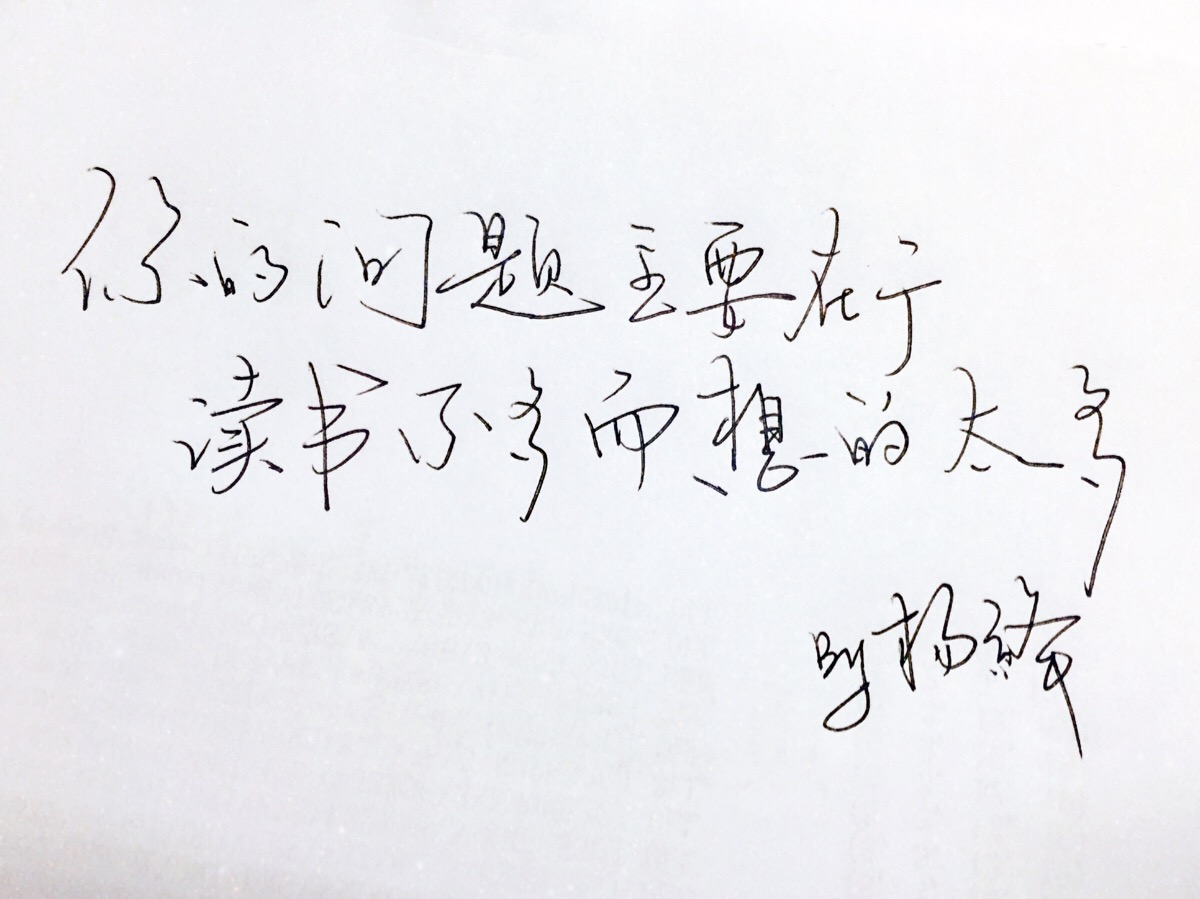 你的问题主要在于
读书不多而想的太多
By杨绛